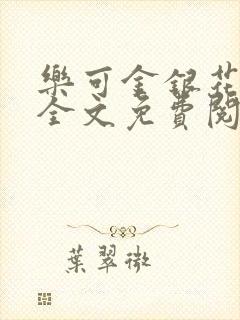 樂可金銀花
全文免費閱
葉翠微